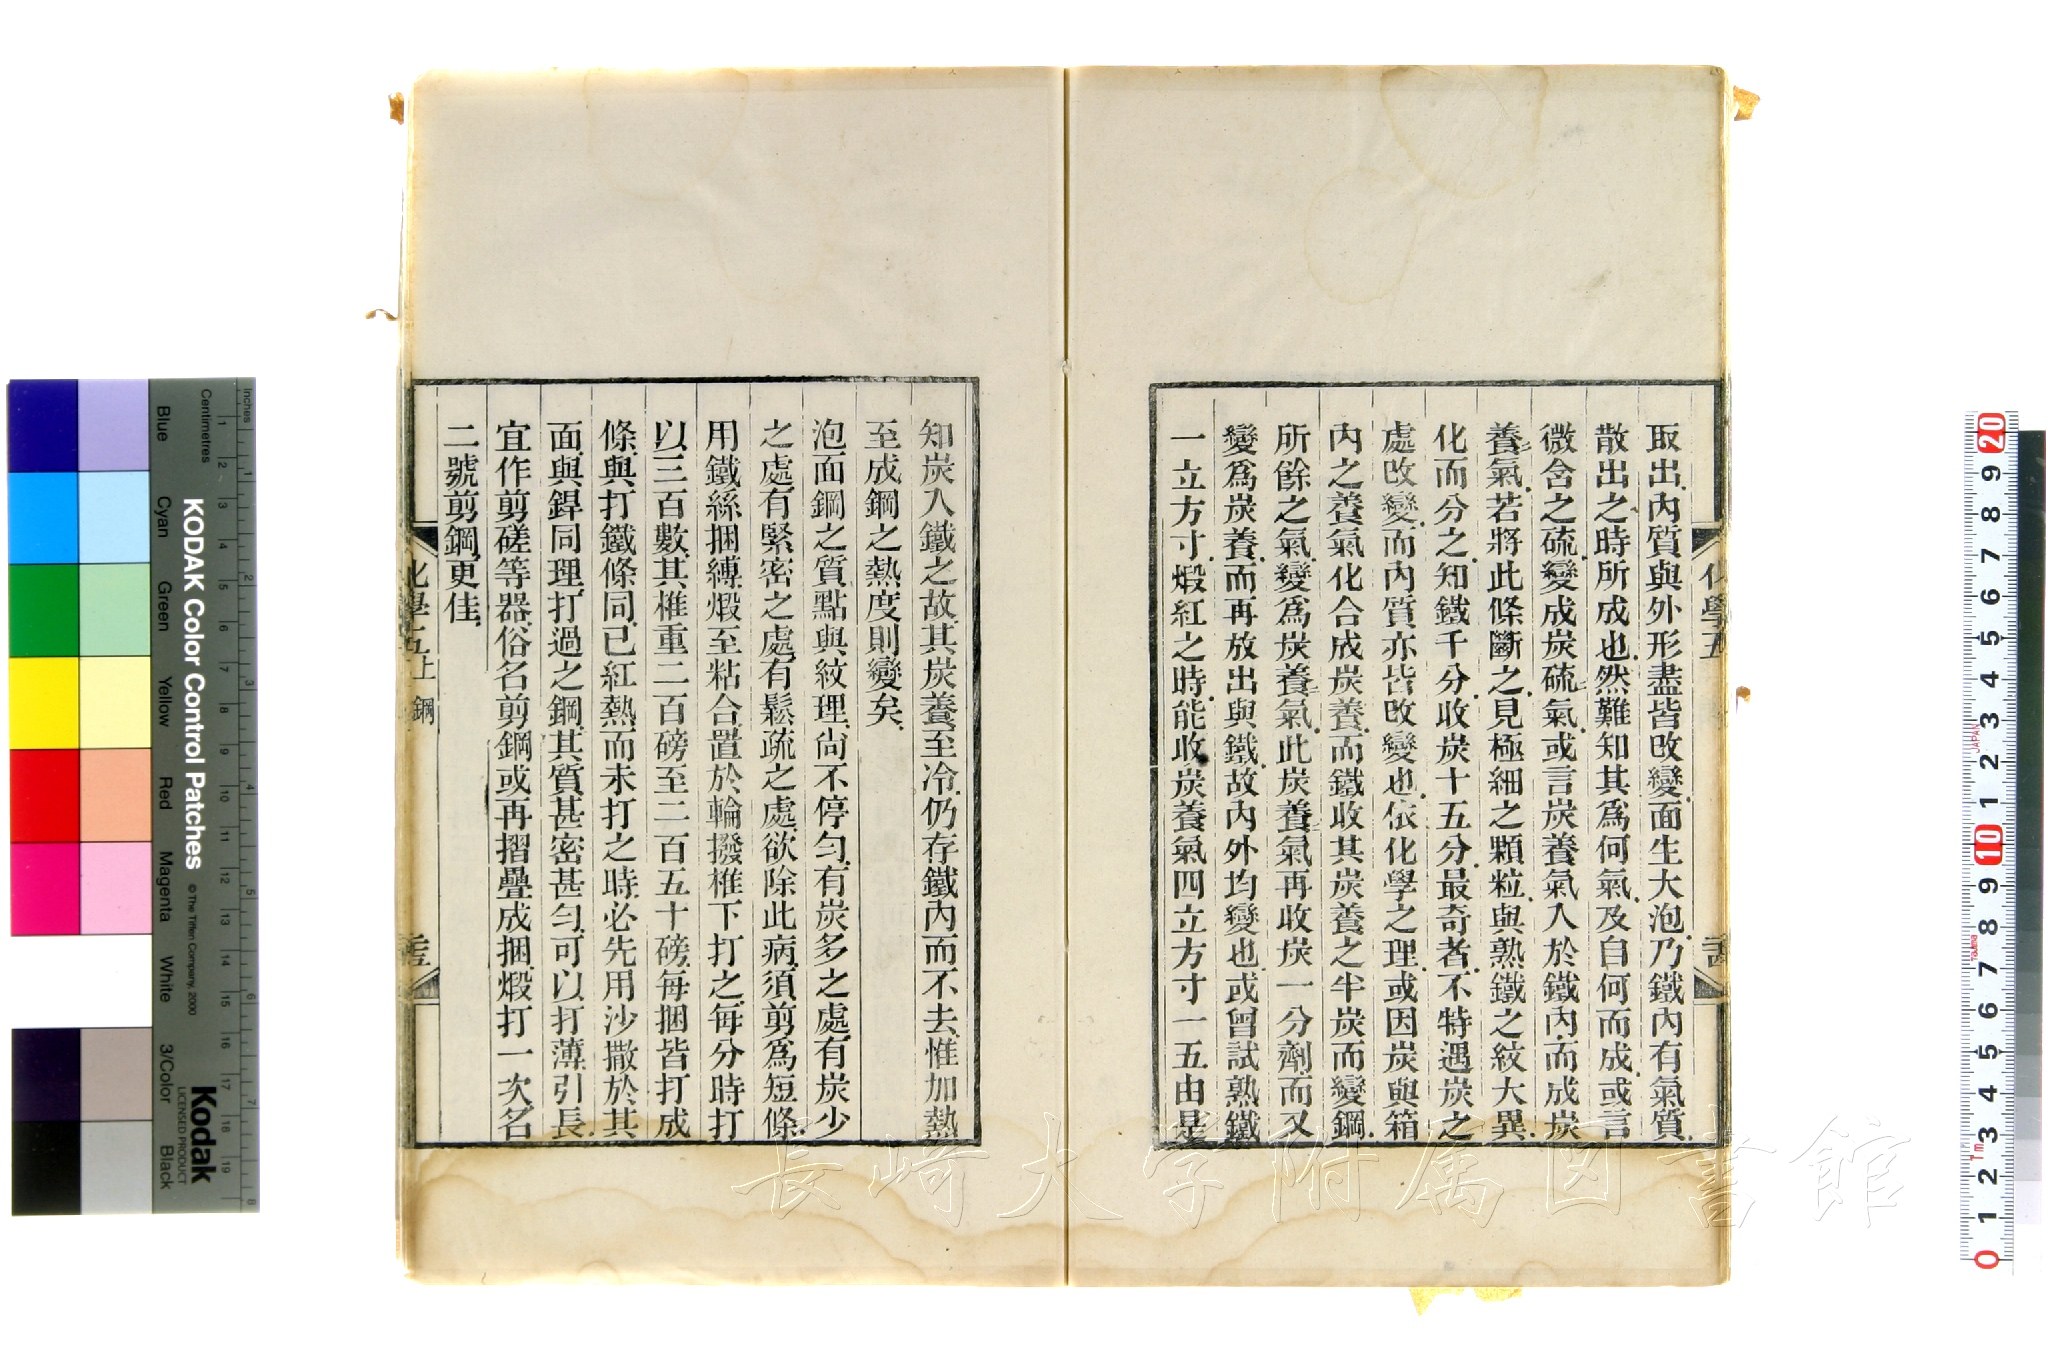 取出、內質與外形盡皆改變、面生大泡、乃鐵內有氣質、
散出之時所成也、然難知其爲何氣、及自何而成、或言
微含之硫、變成炭硫氣、或言炭養氣入於鐵內、而成炭
養氣、若將此條斷之、見極細之顆粒、與熟鐵之紋大異、
化而分之、知鐵千分、收炭十五分、最奇者、不特遇炭之
處改變、而內質亦皆改變也、依化學之理、或因炭與箱
內之養氣化合成炭養、而鐵收其炭養之半炭而變鋼、
所餘之氣、變爲炭養氣、此炭養氣再收炭一分劑、而又
變爲炭養、而再放出與鐵、故內外均變也、或曾試熟鐵
一立方寸、煅紅之時、能收炭養氣四立方寸一五、由是
化學五
知炭入鐵之故、其炭養至冷、仍存鐵內而不去、惟加熱
至成鋼之熱度則變矣、
泡面鋼之質點與紋理、尚不停勻、有炭多之處、有炭少
之處、有緊密之處、有鬆疏之處、欲除此病、須剪爲短條、
用鐵絲捆縛、煅至粘合、置於輪撥椎下打之、每分時打
以三百數、其椎重二百磅至二百五十磅、每捆皆打成
條、與打鐵條同、已紅熱、而未打之時、必先用沙撒於其
面、與銲同理、打過之鋼、其質甚密甚勻、可以打薄、引長、
宜作剪磋等器、俗名剪鋼、或再摺疊成捆、煅打一次、名
二號剪鋼、更佳、
化學五上 鋼
KODAK Color Control Patches
© The Tiffen Company, 2000
Kodak
LICENSED PRODUCT
Inches
Centimetres
Blue
Cyan
Green
Yellow
Red
Magenta
White
3/Color
Black
1 2 3 4 5 6 7 8
1 2 3 4 5 6 7 8 9 10 11 12 13 14 15 16 17 18 19
20 9 8 7 6 5 4 3 2 1 10 9 8 7 6 5 4 3 2 1 0
JAPAN
1m
長崎大学附属図書館